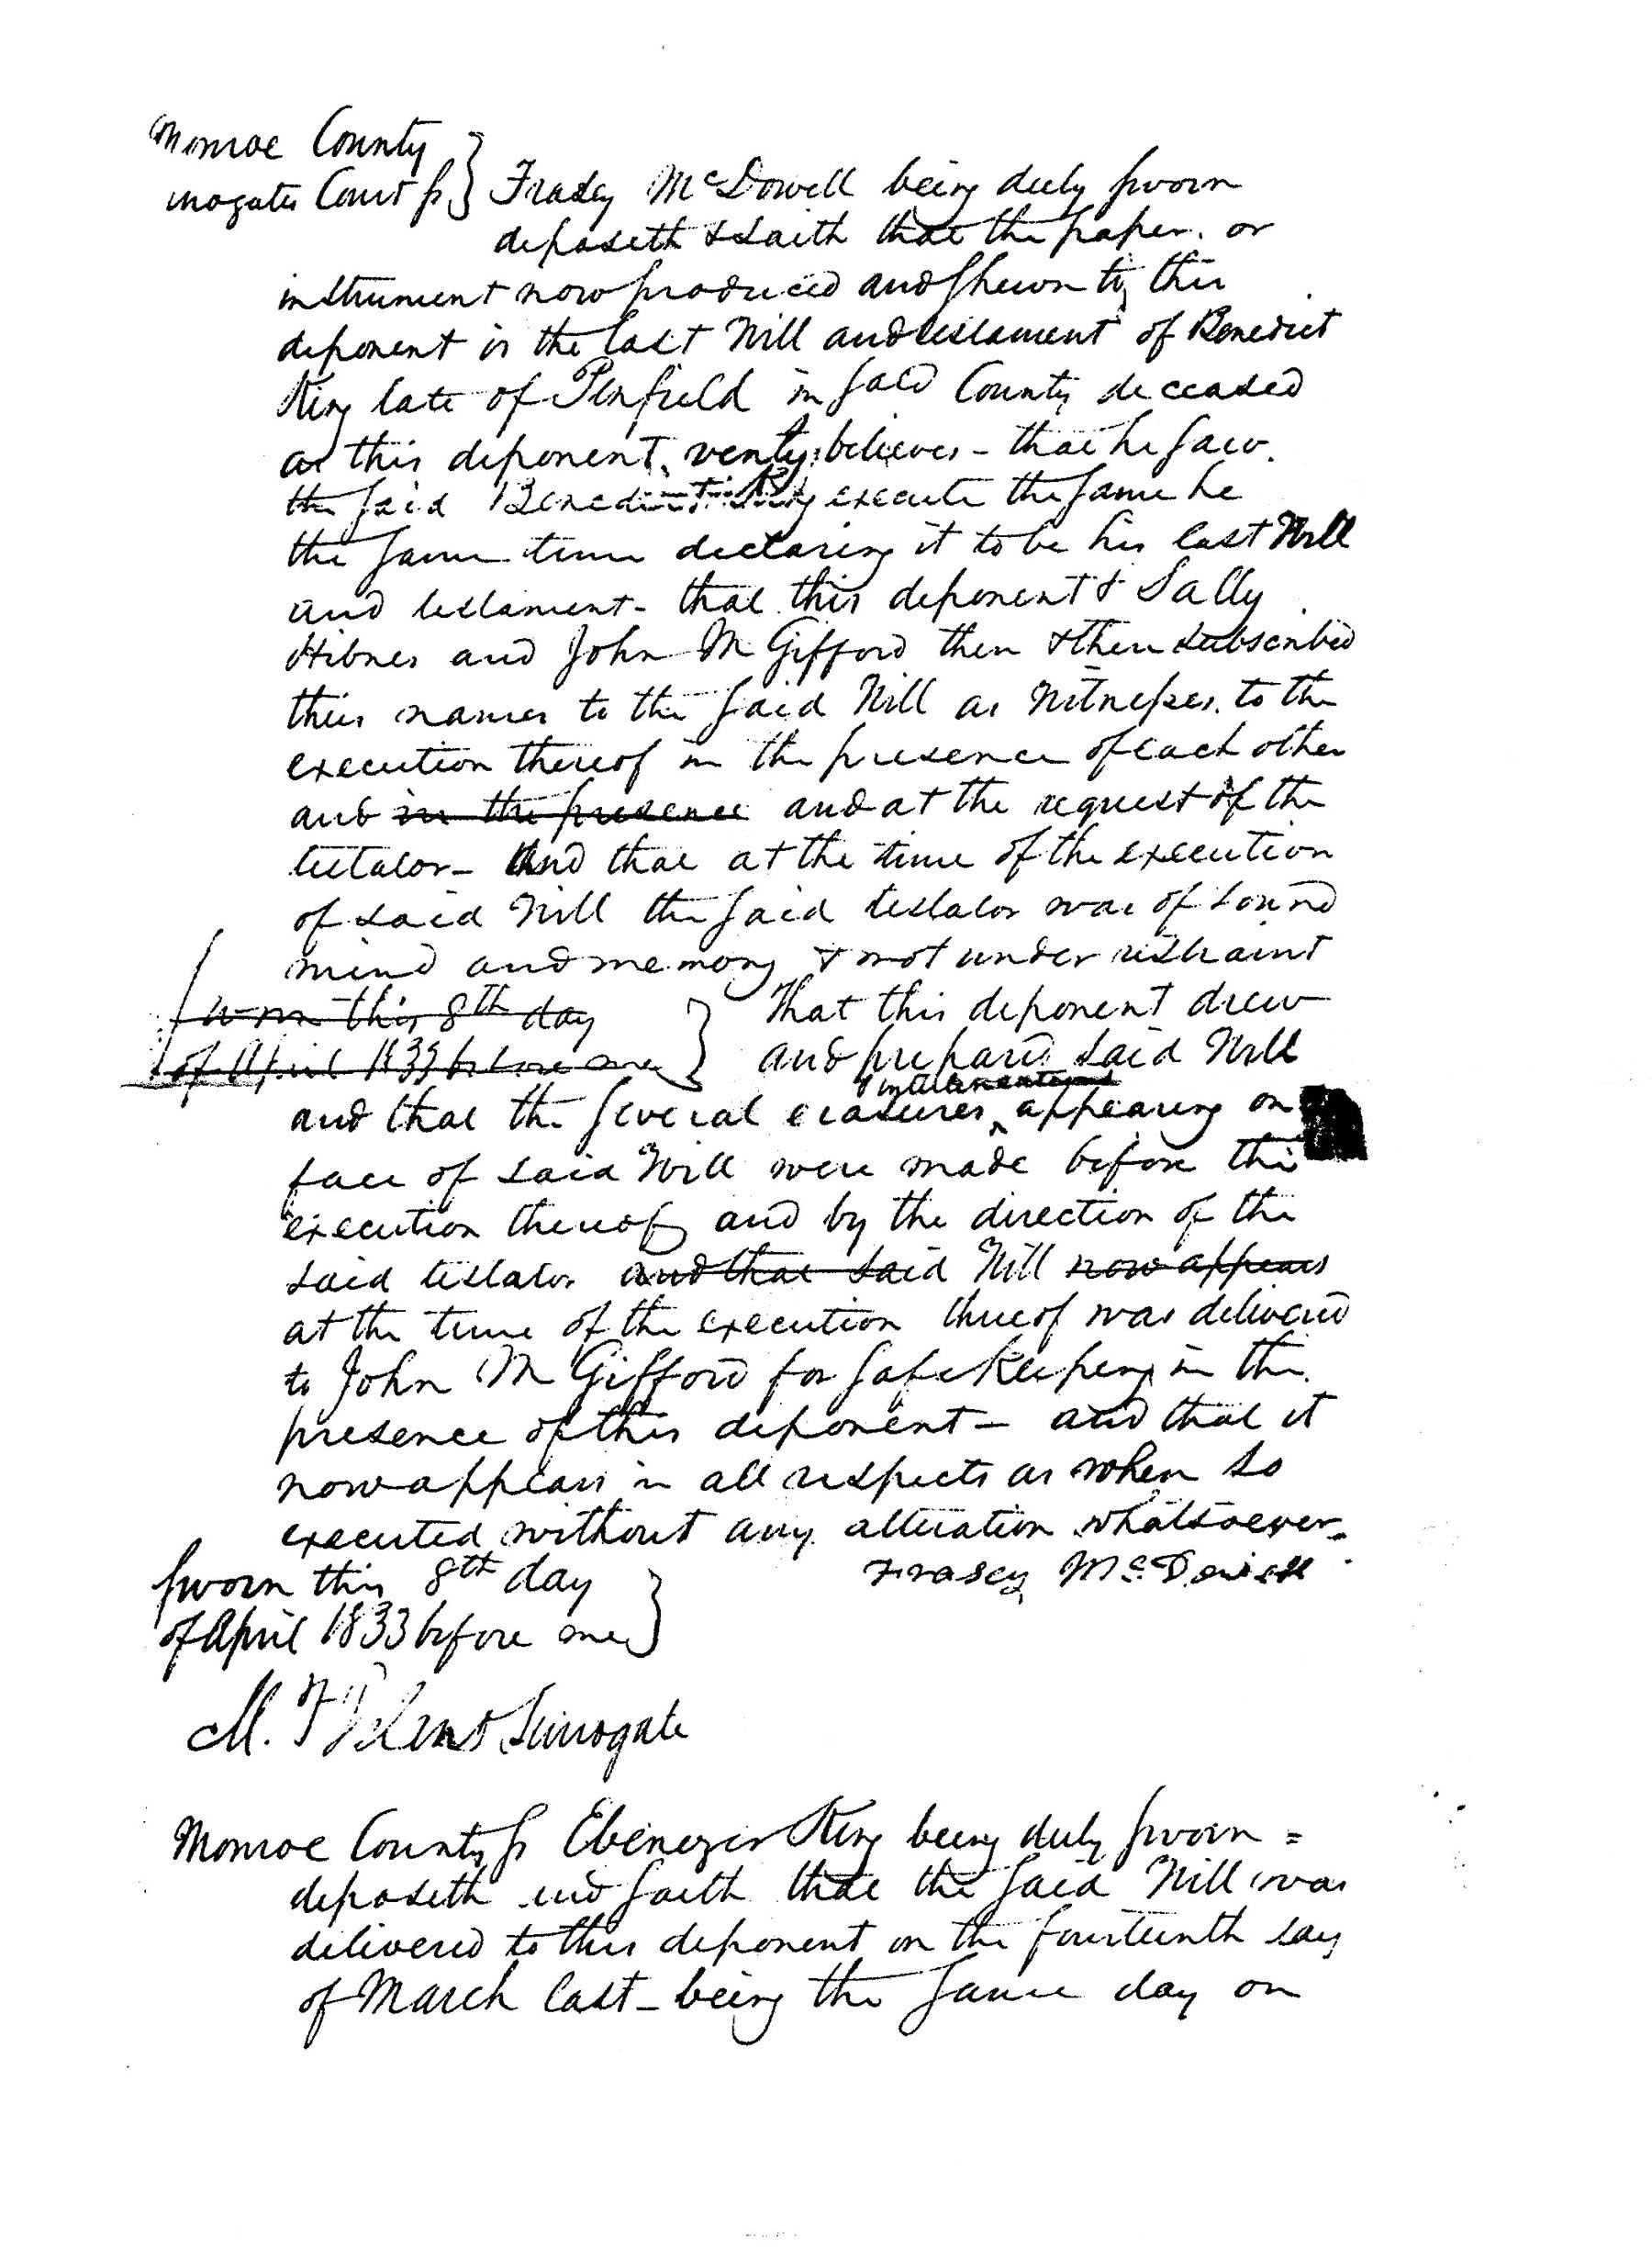 Monroe County
rrogates Court ss } Frasey McDowell being duly sworn
deposeth & saith that the paper or
instrument now produced and shewn to this
deponent is the last Will and testament of Benedict
King late of Penfield in said County deceased
as this deponent verily believes - that he saw
the said Benedict King execute the same he
the same time declaring it to be his last Will
and testament - that this deponent & Sally
and John M Gifford then & then subscribed
their names to the said Will as Witnesses to the
execution thereof in the presence of each other
and in the presence and at the request of the
testator - And that at the time of the execution
of said Will the said testator was of sound
mind and memory & not under restraint
sworn this 8th day } That this deponent drew
of April 1833 before me and prepared said Will
&
and that the several erasures appearing on
face of said Will were made before the
execution thereof and by the direction of the
said testator and that said Will now appears
at the time of the execution thereof was delivered
to John M Gifford for safe keeping in the
presence of this deponent - and that it
now appears in all respects as when so
executed without any alteration whatsoever -
Sworn this 8th day } Frasey McDowell
of April 1833 before me
M. F. Surrogate
Monroe County ss Ebenezer King being duly sworn =
deposeth and saith that the said Will was
delivered to this deponent on the fourteenth day
of March last - being the same day on